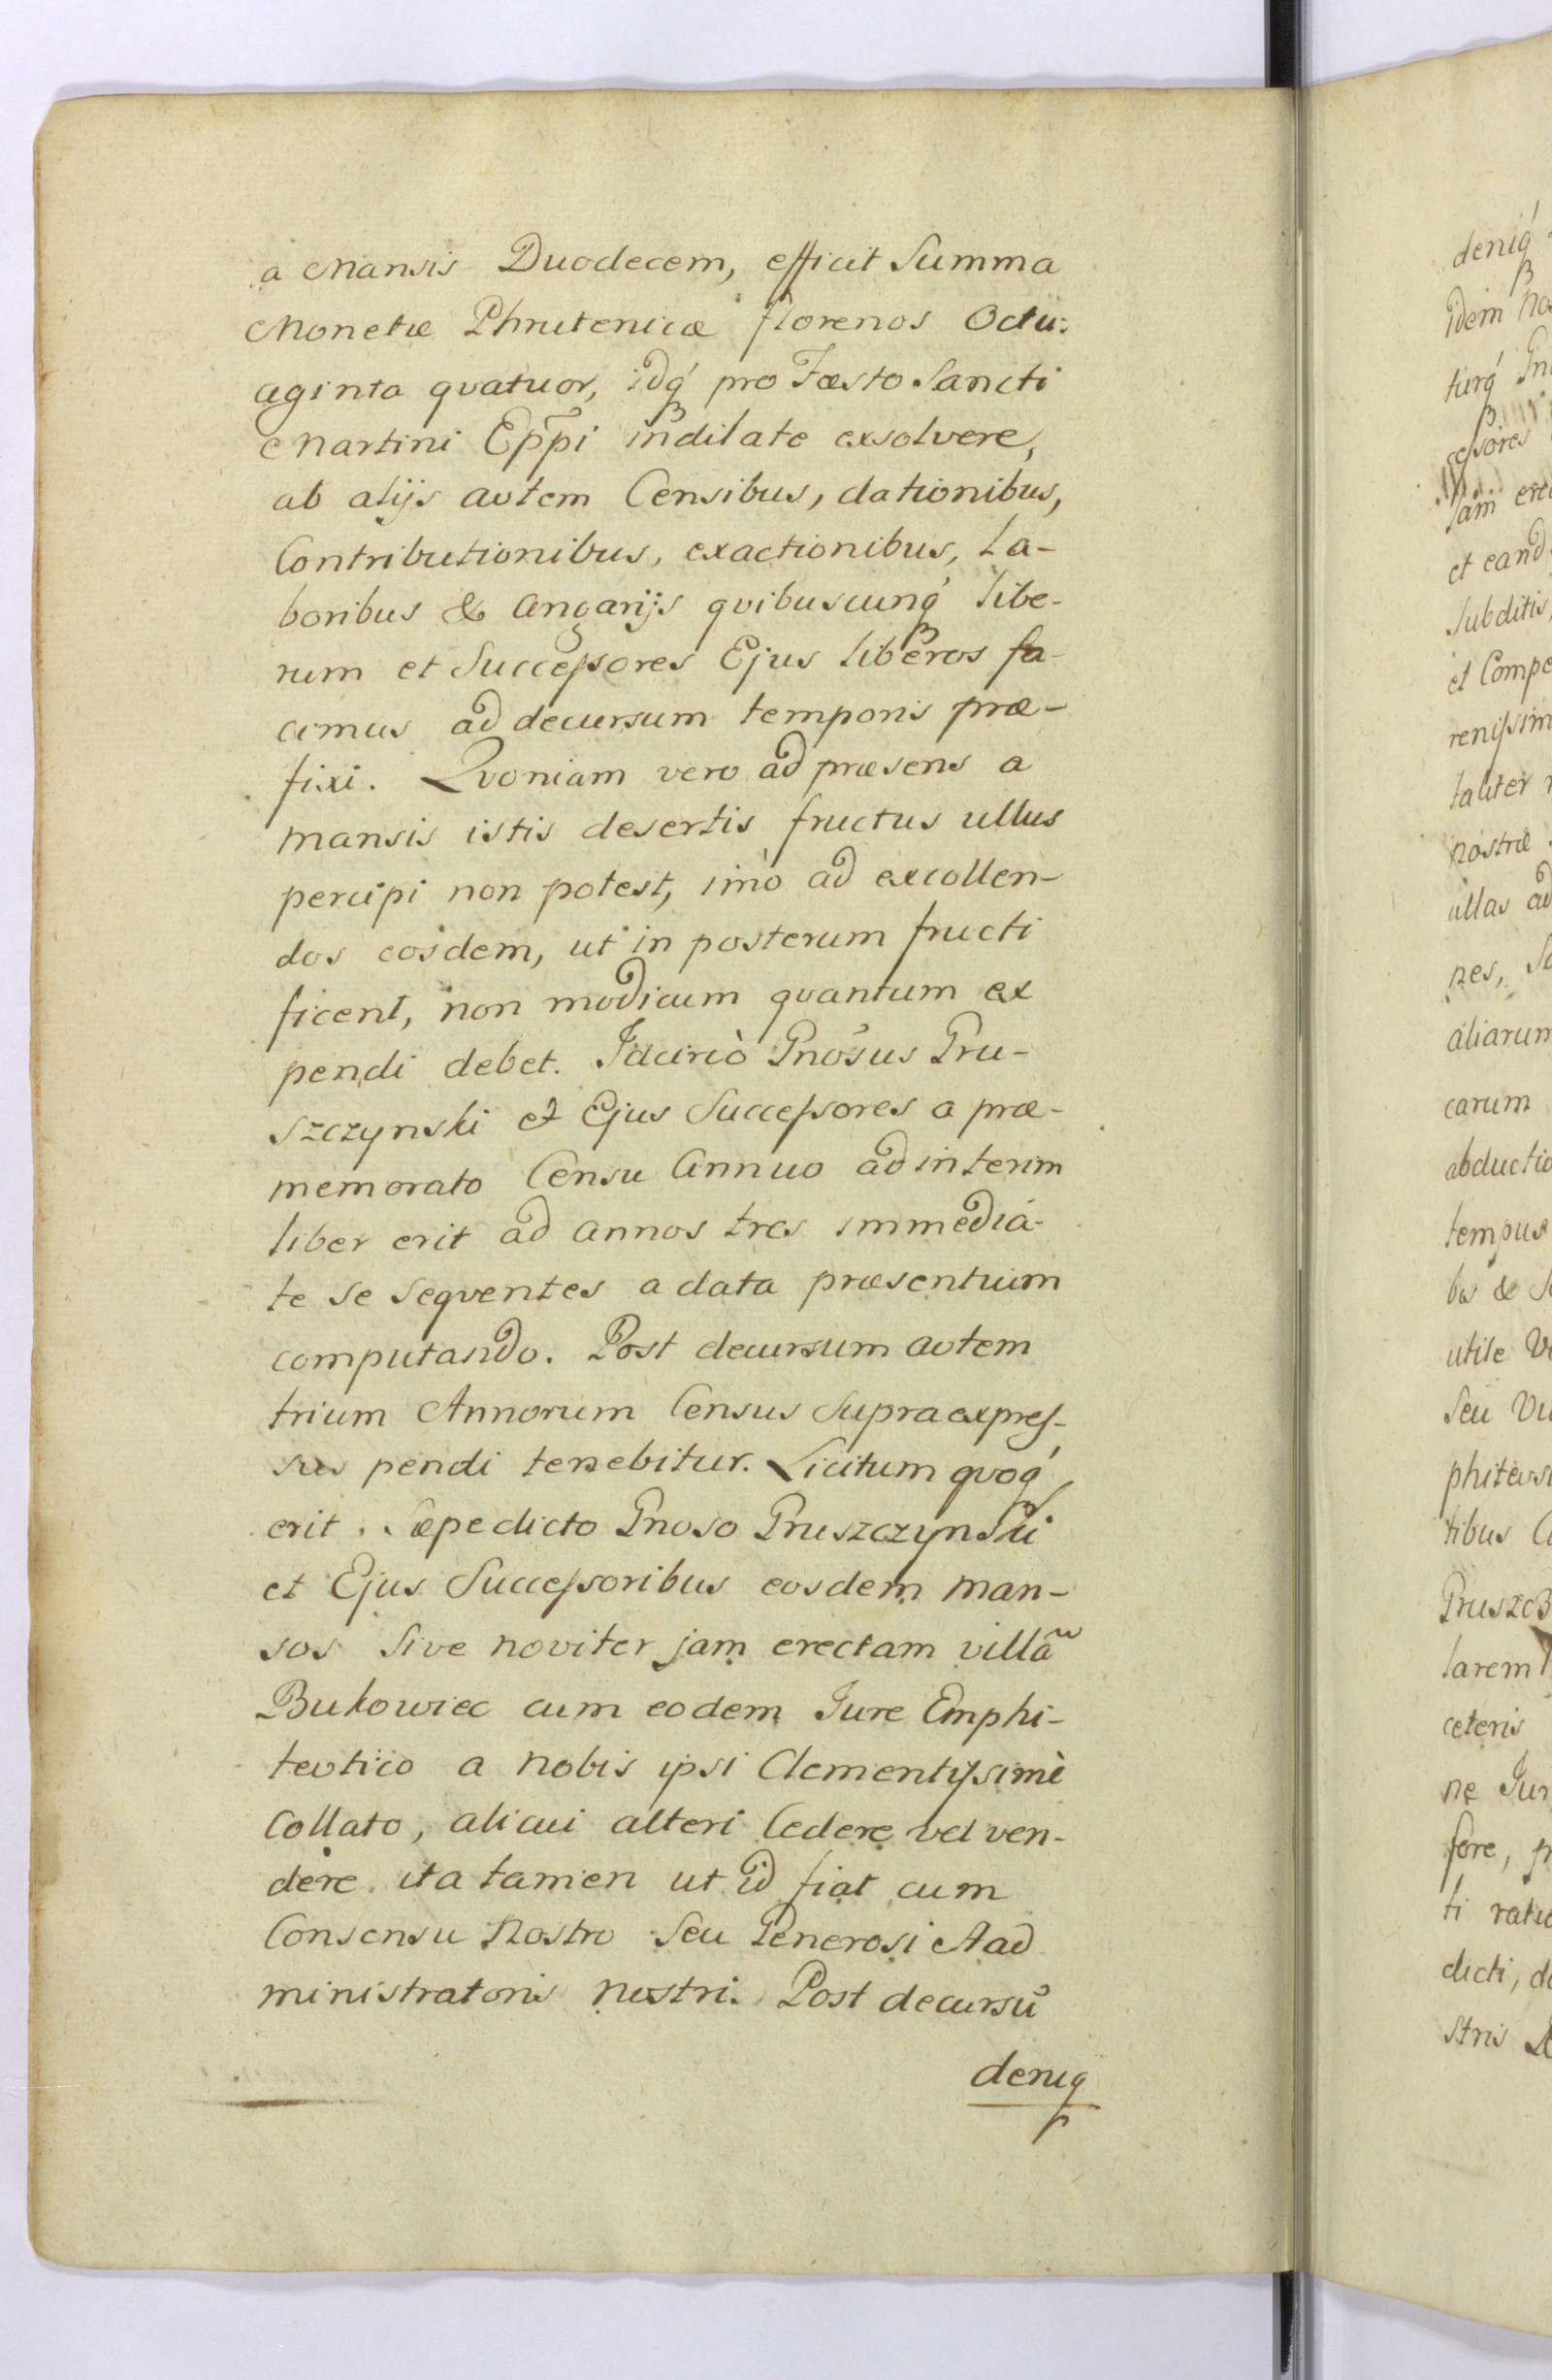 a Mansis Duodecem, efficit Summa
Monetæ Phrutenicæ florenos Octu:
aginta qvatuor, idq́ pro Fæsto Sancti
Martini Epp̃i indilate exsolvere,
ab alijs avtem Censibus, dationibus,
Contributionibus, exactionibus, La-
boribus & Angarijs qvibuscunq́ libe-
rum et Successores Ejus liberos fa-
cimus ad decursum temporis præ-
fixi. Qvoniam vero ad præsens a
mansis istis desertis fructus ullus
percipi non potest, imò ad excollen-
dos eosdem, ut in posterum fructi
ficent, non modicum qvantum ex
pendi debet. Idcircò Gnosus Pru-
szczynski et Ejus Successores a præ-
memorato Censu Annuo ad interim
liber erit ad annos tres immedia-
te se seqventes a data præsentium
computando. Post decursum avtem
trium Annorum Census supraexpres-
sus pendi tenebitur. Licitum qvoq́
erit Sæpedicto Gnoso Pruszczynski
et Ejus Successoribus eosdem man-
sos sive noviter jam erectam villã
Bukowiec cum eodem Jure Emphi-
tevtico a nobis ipsi Clementissimè
Collato, alicui alteri Cedere vel ven-
dere ita tamen ut id fiat cum
Consensu Nostro seu Generosi Aad
ministratoris nostri. Post decursũ
deniq
deniq́
idem
turq́
cessores
sam
et eand
Subditis,
et Compe
renissim
taliter
nostræ
ullas ad
nes,
aliarum
carum
abductio
tempus
bis &
utile
seu
phitevsi
tibus
Pruszcz
larem
ceteris
ne Jur
fore,
ti
dicti,
stris